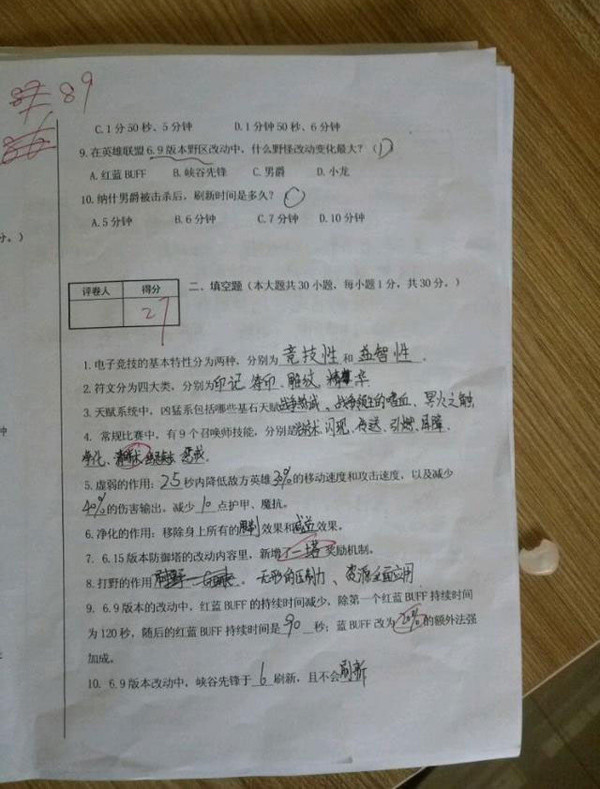 89
C. 1分50秒、5分钟 D. 1分50秒、6分钟
9. 在英雄联盟6.9版本野区改动中，什么野怪改动变化最大？（D）
A. 红蓝BUFF B. 峡谷先锋 C. 男爵 D. 小龙
10. 纳什男爵被击杀后，刷新时间是多久？
A. 5分钟 B. 6分钟 C. 7分钟 D. 10分钟
分。）
评卷人 得分
27
二、填空题（本大题共30小题，每小题1分，共30分。）
1. 电子竞技的基本特性分为两种，分别为 竞技性 和 益智性 。
2. 符文分为四大类，分别为印记、符印、雕纹、精华
3. 天赋系统中，凶猛系包括哪些基石天赋战争热诚、战争领主的嗜血、冥火之触
4. 常规比赛中，有9个召唤师技能，分别是治疗术、闪现、传送、引燃、屏障、
净化、清晰术、惩戒。
5. 虚弱的作用：2.5秒内降低敌方英雄30%的移动速度和攻击速度，以及减少
40%的伤害输出，减少 10 点护甲、魔抗。
6. 净化的作用：移除身上所有的限制效果和减益效果。
7. 6.15版本防御塔的改动内容里，新增了一塔奖励机制。
8. 打野的作用 。无形的压制力、资源全面应用
9. 6.9版本的改动中，红蓝BUFF的持续时间减少，除第一个红蓝BUFF持续时间
为120秒，随后的红蓝BUFF持续时间是 90 秒；蓝BUFF改为 的额外法强
加成。
10. 6.9版本改动中，峡谷先锋于 6 刷新，且不会刷新
钟